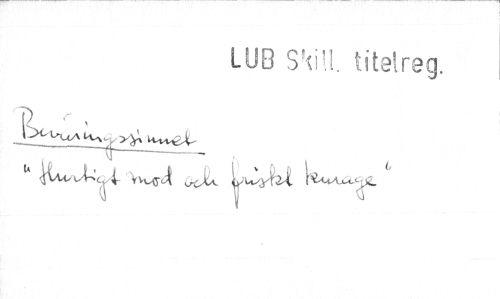 LUB Skill. titelreg.
Beväringssinnet
"Hurtigt mod och friskt kurage"